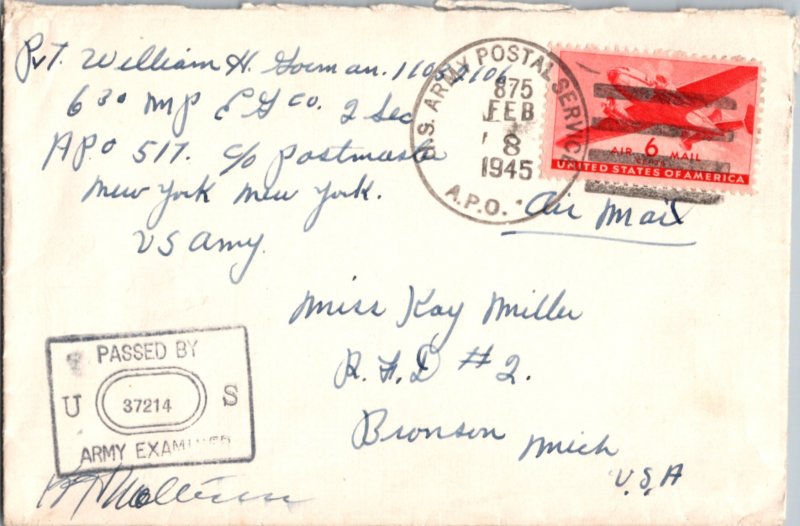 Pvt. William H. Gorman.
630 MP E G Co. 2 Sec
APO 517. c/o Postmaster
New York New York.
US Army
U.S. ARMY POSTAL SERVICE
875
FEB
8
1945
A.P.O.
AIR 6 MAIL
CENTS
UNITED STATES OF AMERICA
Air Mail
Miss Kay Miller
R.F.D #2.
Bronson Mich
U.S.A
PASSED BY
U 37214 S
ARMY EXAMINER